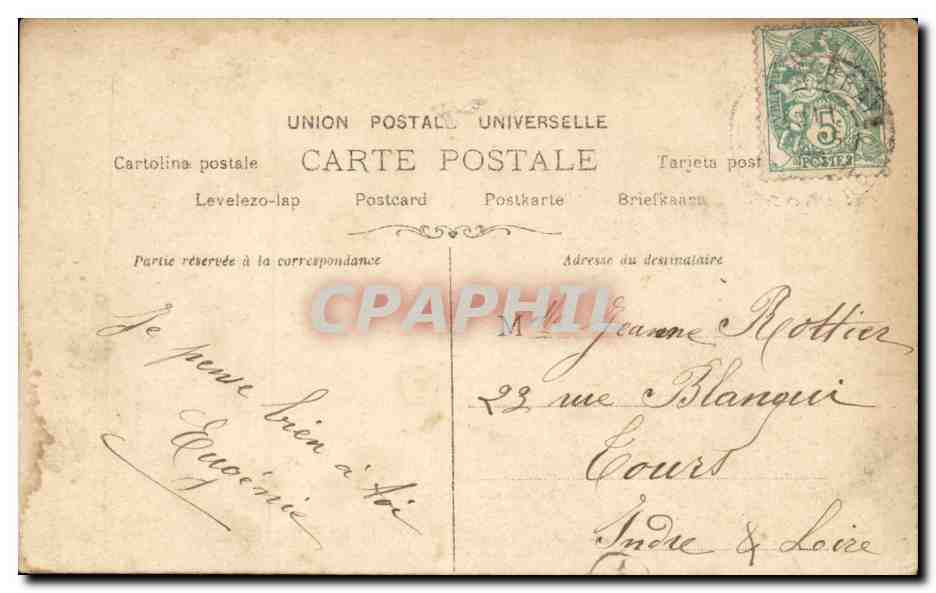 UNION POSTALE UNIVERSELLE
CARTE POSTALE
Cartolina postale
Tarjeta post
Levelezo-lap Postcard Postkarte Briefkaart
Partie réservée à la correspondance
Adresse du destinataire
Je pense bien à toi
Eugénie
Mlle Jeanne Rottier
23 rue Blanqui
Tours
Indre & Loire
5c
POSTES
CPAPHIL